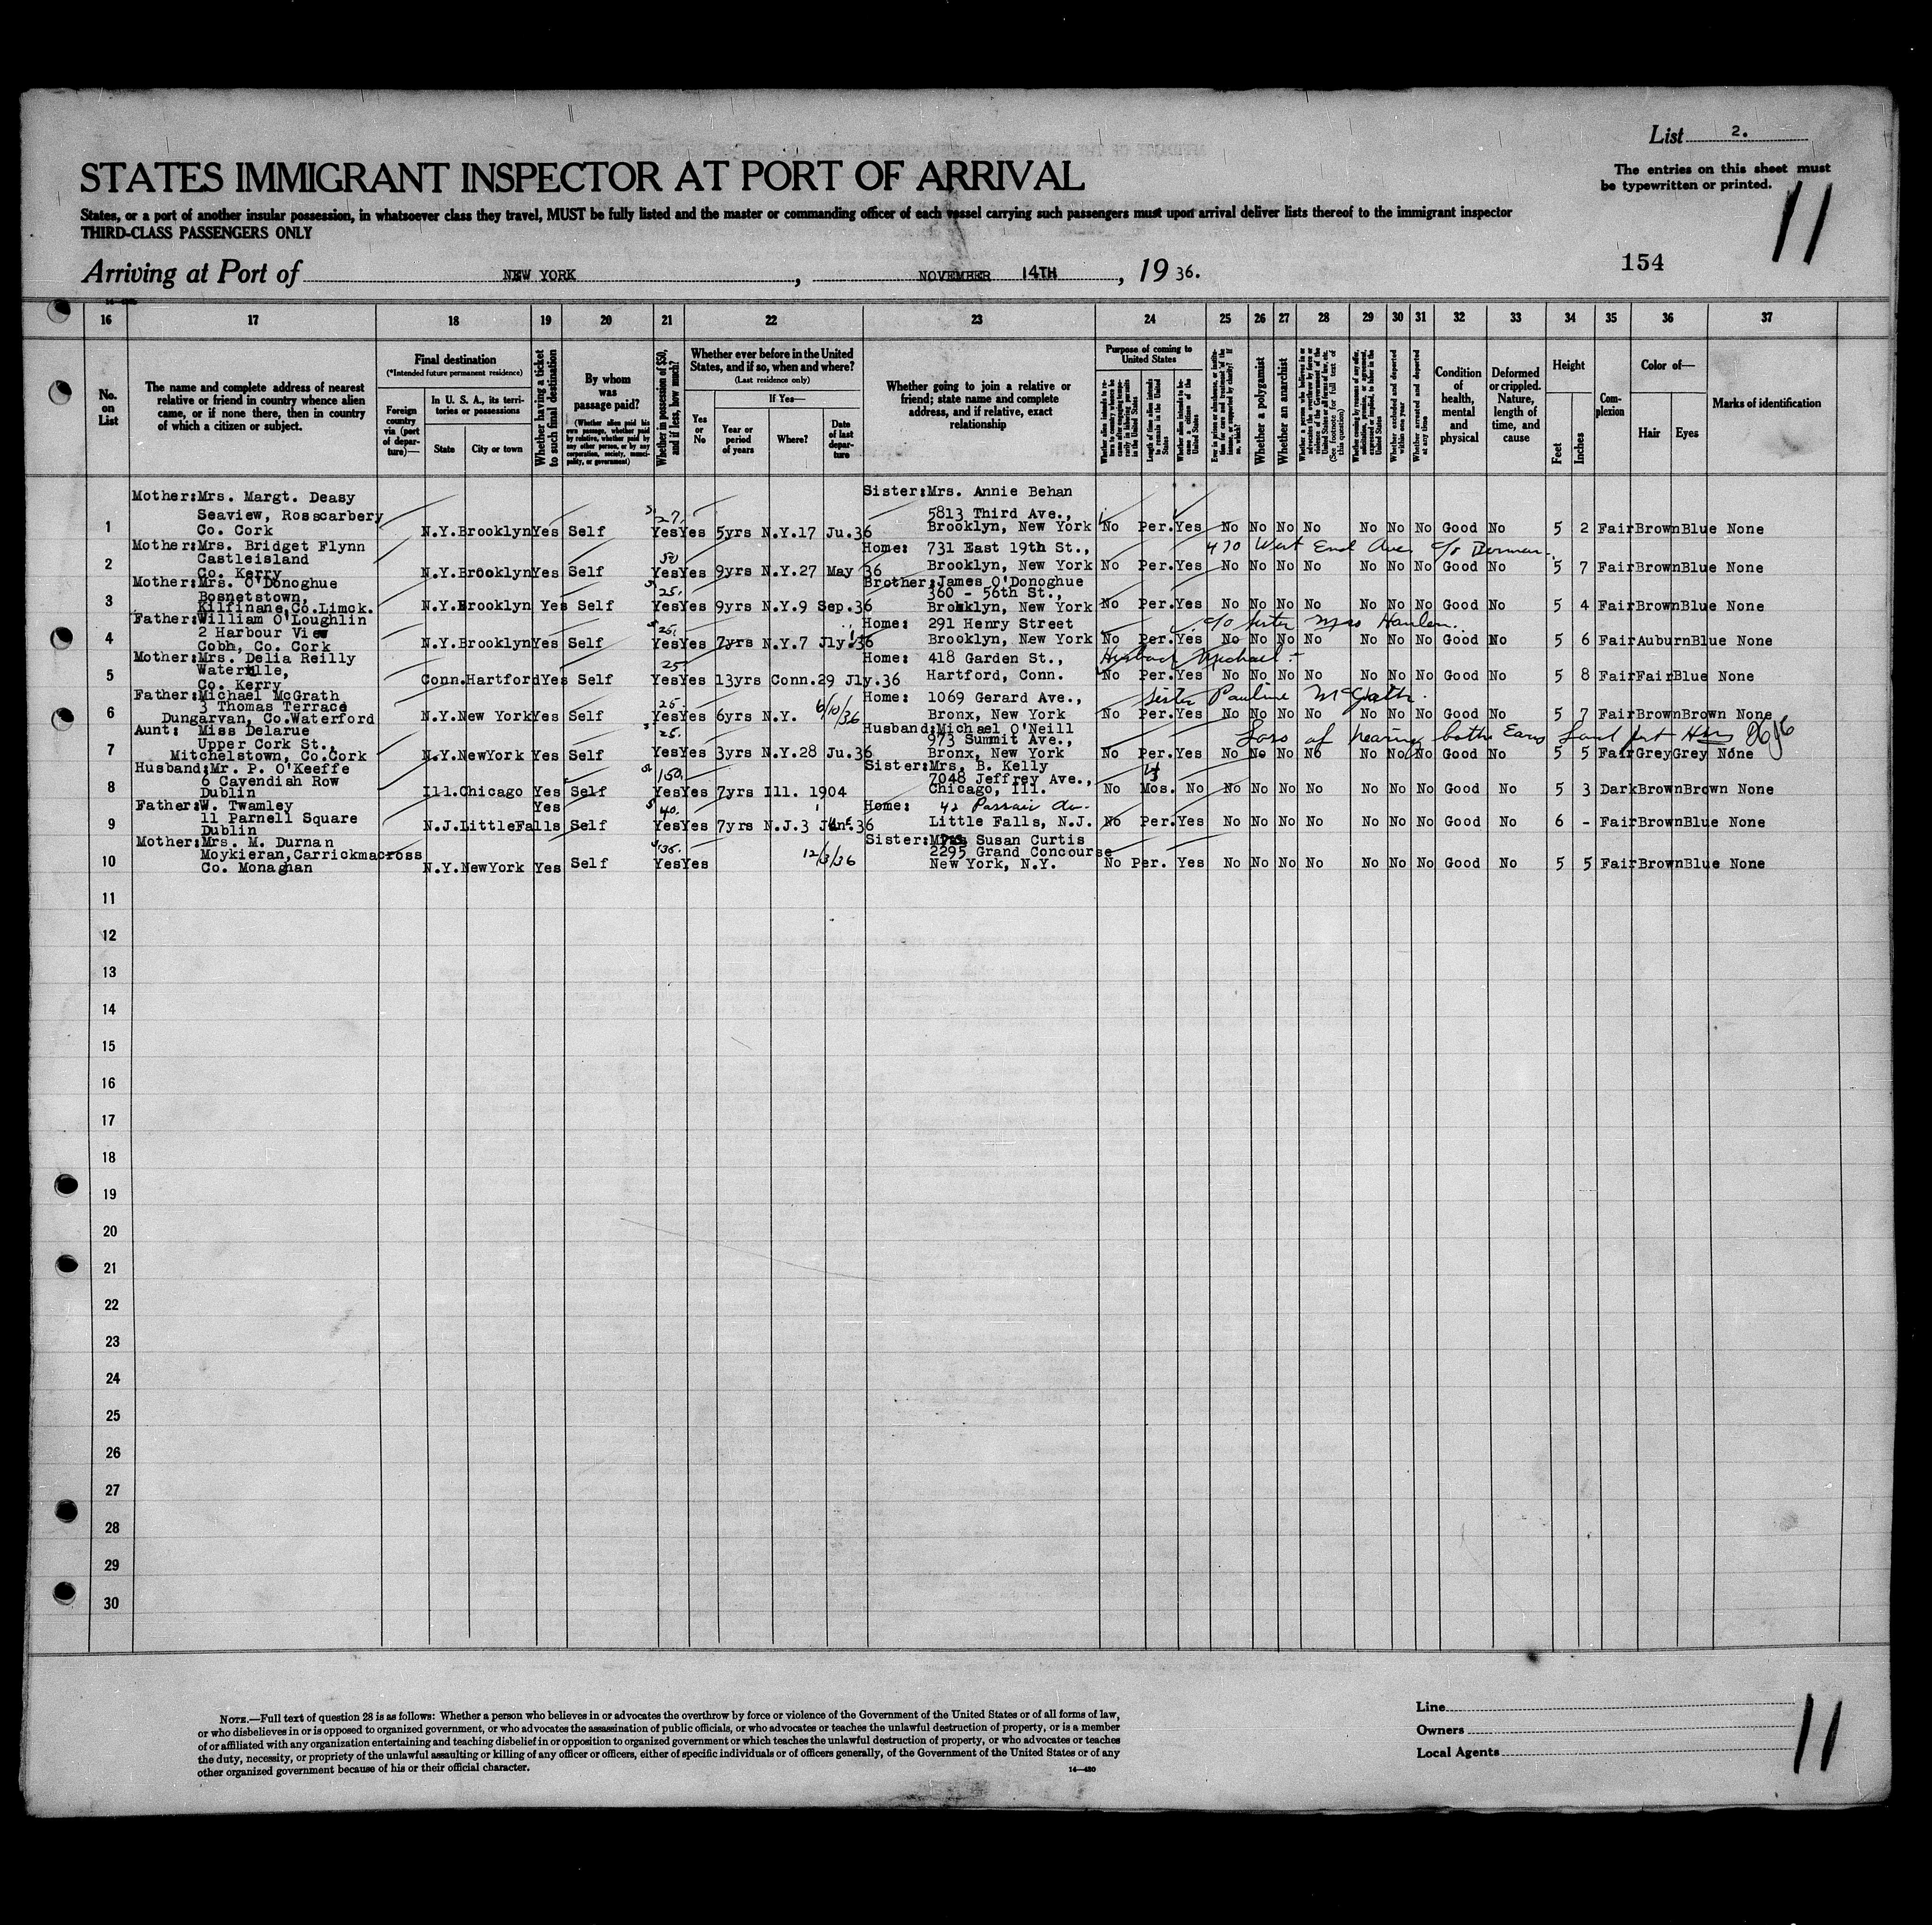 List 2.
The entries on this sheet must
be typewritten or printed.
11
STATES IMMIGRANT INSPECTOR AT PORT OF ARRIVAL
States, or a port of another insular possession, in whatsoever class they travel, MUST be fully listed and the master or commanding officer of each vessel carrying such passengers must upon arrival deliver lists thereof to the immigrant inspector
THIRD-CLASS PASSENGERS ONLY
154
Arriving at Port of NEW YORK, NOVEMBER 14TH, 19 36.
16 17 18 19 20 21 22 23 24 25 26 27 28 29 30 31 32 33 34 35 36 37
No. on List
The name and complete address of nearest
relative or friend in country whence alien
came, or if none there, then in country
of which a citizen or subject.
Final destination
(*Intended future permanent residence)
Foreign country via (port of departure)—
In U. S. A., its territories or possessions
State
City or town
Whether having a ticket to such final destination
By whom was passage paid?
(Whether alien paid his own passage, whether paid by relative, whether paid by any other person, or by any corporation, society, municipality, or government)
Whether in possession of $50, and if less, how much?
Whether ever before in the United
States, and if so, when and where?
(Last residence only)
Yes or No
If Yes—
Year or period of years
Where?
Date of last departure
Whether going to join a relative or
friend; state name and complete
address, and if relative, exact
relationship
Purpose of coming to United States
Length of time alien intends to remain in the United States
Whether alien intends to become a citizen of the United States
Whether a polygamist
Whether an anarchist
(See footnote for full text of this question)
Whether excluded and deported within one year
Whether arrested and deported at any time
Condition of health, mental and physical
Deformed or crippled. Nature, length of time, and cause
Height
Feet
Inches
Complexion
Color of—
Hair
Eyes
Marks of identification
Mother: Mrs. Margt. Deasy Sister: Mrs. Annie Behan
Seaview, Rosscarbery 27. 5813 Third Ave.,
1 Co. Cork N.Y. Brooklyn Yes Self Yes Yes 5yrs N.Y. 17 Ju.36 Brooklyn, New York No Per. Yes No No No No No No No Good No 5 2 Fair Brown Blue None
Mother: Mrs. Bridget Flynn Home: 731 East 19th St., 470 West End Ave. c/o Berman
Castleisland 50
2 Co. Kerry N.Y. Brooklyn Yes Self Yes Yes 9yrs N.Y. 27 May 36 Brooklyn, New York No Per. Yes No No No No No No No Good No 5 7 Fair Brown Blue None
Mother: Mrs. O'Donoghue Brother: James O'Donoghue
Bosnetstown, 25. 360 - 56th St.,
3 Kilfinane, Co. Limck. N.Y. Brooklyn Yes Self Yes Yes 9yrs N.Y. 9 Sep.36 Brooklyn, New York No Per. Yes No No No No No No No Good No 5 4 Fair Brown Blue None
Father: William O'Loughlin Home: 291 Henry Street c/o sister Mrs Hanlen.
2 Harbour View 25.
4 Cobh, Co. Cork N.Y. Brooklyn Yes Self Yes Yes 7yrs N.Y. 7 Jly.36 Brooklyn, New York No Per. Yes No No No No No No No Good No 5 6 Fair Auburn Blue None
Mother: Mrs. Delia Reilly Home: 418 Garden St., Husband Michael.
Waterville, 25
5 Co. Kerry Conn. Hartford Yes Self Yes Yes 13yrs Conn. 29 Jly.36 Hartford, Conn. No Per. Yes No No No No No No No Good No 5 8 Fair Fair Blue None
Father: Michael McGrath Home: 1069 Gerard Ave., Sister Pauline McGrath.
3 Thomas Terrace 25.
6 Dungarvan, Co. Waterford N.Y. New York Yes Self Yes Yes 6yrs N.Y. 6/10/36 Bronx, New York No Per. Yes No No No No No No No Good No 5 7 Fair Brown Brown None
Aunt: Miss Delarue Husband: Michael O'Neill Loss of hearing both Ears
Upper Cork St., 25. 973 Summit Ave.,
7 Mitchelstown, Co. Cork N.Y. NewYork Yes Self Yes Yes 3yrs N.Y. 28 Ju.36 Bronx, New York No Per. Yes No No No No No No No Good No 5 5 Fair Grey Grey None
Husband: Mr. P. O'Keeffe Sister: Mrs. B. Kelly
6 Cavendish Row 150. 7048 Jeffrey Ave.,
8 Dublin Ill. Chicago Yes Self Yes Yes 7yrs Ill. 1904 Chicago, Ill. No Mos. No No No No No No No No Good No 5 3 Dark Brown Brown None
Father: W. Twamley Yes Home: 42 Passaic Av.
11 Parnell Square 40.
9 Dublin N.J. LittleFalls Self Yes Yes 7yrs N.J. 3 June.36 Little Falls, N.J. No Per. Yes No No No No No No No Good No 6 - Fair Brown Blue None
Mother: Mrs. M. Durnan Sister: Mrs. Susan Curtis
Moykieran, Carrickmacross 135. 2295 Grand Concourse
10 Co. Monaghan N.Y. NewYork Yes Self Yes Yes 12/3/36 New York, N.Y. No Per. Yes No No No No No No No Good No 5 5 Fair Brown Blue None
11
12
13
14
15
16
17
18
19
20
21
22
23
24
25
26
27
28
29
30
NOTE.—Full text of question 28 is as follows: Whether a person who believes in or advocates the overthrow by force or violence of the Government of the United States or of all forms of law,
or who disbelieves in or is opposed to organized government, or who advocates the assassination of public officials, or who advocates or teaches the unlawful destruction of property, or is a member
of or affiliated with any organization entertaining and teaching disbelief in or opposition to organized government or which teaches the unlawful destruction of property, or who advocates or teaches
the duty, necessity, or propriety of the unlawful assaulting or killing of any officer or officers, either of specific individuals or of officers generally, of the Government of the United States or of any
other organized government because of his or their official character.
14—480
Line
Owners
Local Agents
11